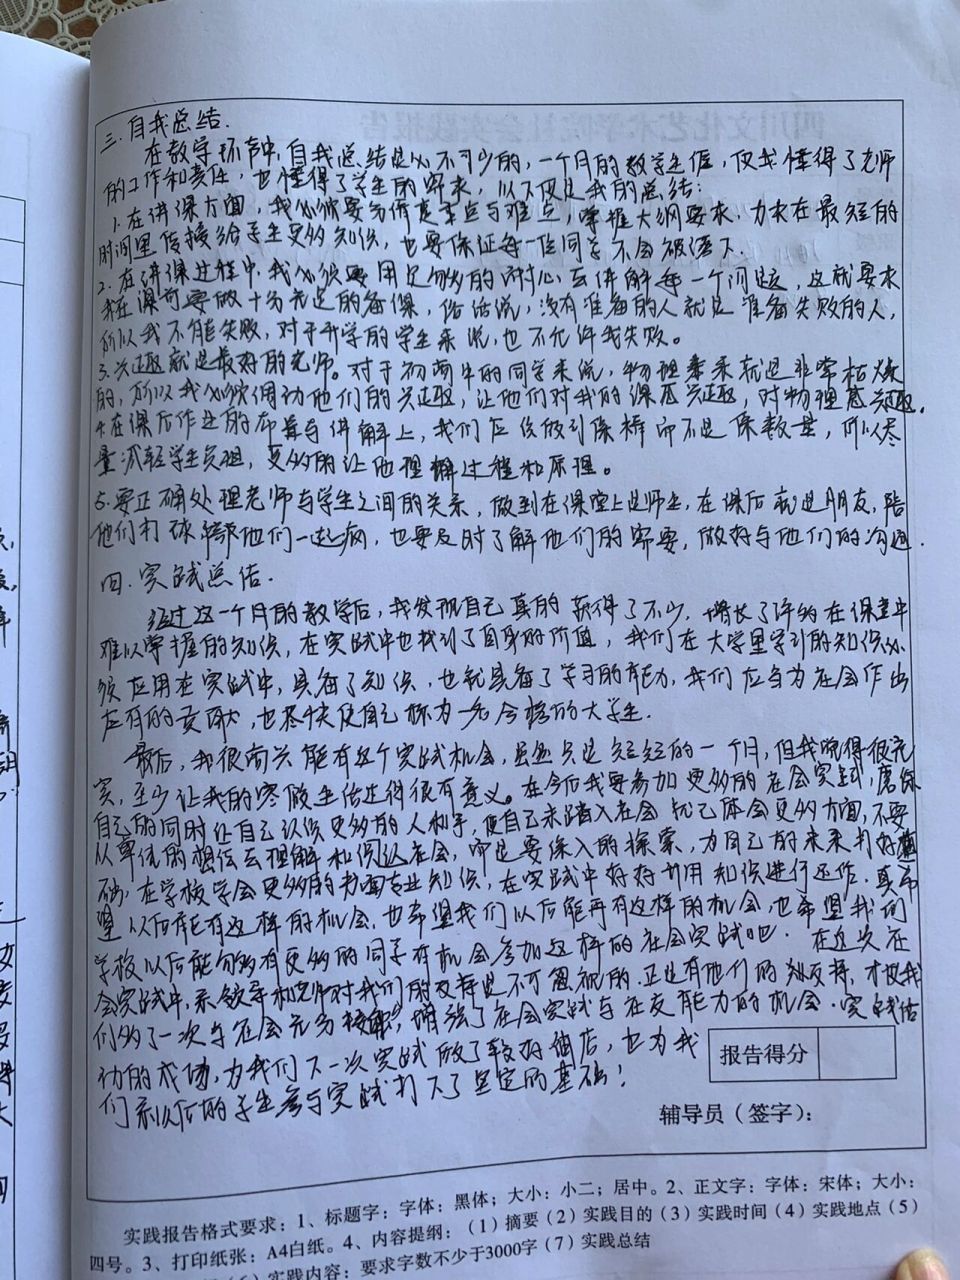 三.自我总结.
在教学环节中,自我总结是必不可少的,一个月的教学生涯,使我懂得了老师
的工作和责任,也懂得了学生的需求,以下便是我的总结:
1.在讲课方面,我必须要分清重点与难点,掌握大纲要求,力求在最短的
时间里传授给学生更多知识,也要保证每一位同学不会被落下.
2.在讲课过程中,我必须要用足够多的耐心去讲解每一个问题,这就要求
我在课前要做十分充足的备课,俗话说,没有准备的人就是准备失败的人,
所以我不能失败,对于升学的学生来说,也不允许我失败。
3.兴趣就是最好的老师。对于初高中的同学来说,物理看来就是非常枯燥
的,所以我必须调动他们的兴趣,让他们对我的课感兴趣,对物理感兴趣.
4.在课后作业的布置与讲解上,我们应该做到保精而不是保数量,所以尽
量减轻学生负担,更多的让他理解过程和原理。
5.要正确处理老师与学生之间的关系,做到在课堂上是师生,在课后就是朋友,陪
他们打球 他们一起疯,也要及时了解他们的需要,做好与他们的沟通.
四.实践总结.
经过这一个月的教学后,我发现自己真的获得了不少,增长了许多在课堂中
难以掌握的知识,在实践中也找到了自身的价值,我们在大学里学到的知识必
须应用在实践中,具备了知识,也就具备了学习的能力,我们应当为社会作出
应有的贡献,也尽快使自己称为一名合格的大学生.
最后,我很高兴能有这个实践机会,虽然只是短短的一个月,但我觉得很充
实,至少让我的寒假生活过得很有意义。在今后我要参加更多的社会实践,磨练
自己的同时让自己认识更多的人和事,使自己未踏入社会 就已体会更多方面,不要
从单纯的想法去理解和认识社会,而是要深入的探索,为自己的未来打好基
础,在学校学会更多的书面专业知识,在实践中好好利用知识进行运作.真希
望以后能有这样的机会,也希望我们以后能再有这样的机会,也希望我们
学校以后能够多有更多的同学有机会参加这样的社会实践吧. 在这次社
会实践中,系领导和老师对我们的支持是不可忽视的.正是有他们的 支持,才使我
们多了一次与社会充分接触,增强了社会实践与社交能力的机会.实践活
动的成功,为我们下一次实践做了较好铺 ,也为我
们系以后的学生参与实践打下了坚定的基础!
报告得分
辅导员(签字):
实践报告格式要求:1、标题字:字体:黑体;大小:小二;居中。2、正文字:字体:宋体;大小:
四号。3、打印纸张:A4白纸。4、内容提纲:(1)摘要(2)实践目的(3)实践时间(4)实践地点(5)
(6)实践内容:要求字数不少于3000字(7)实践总结